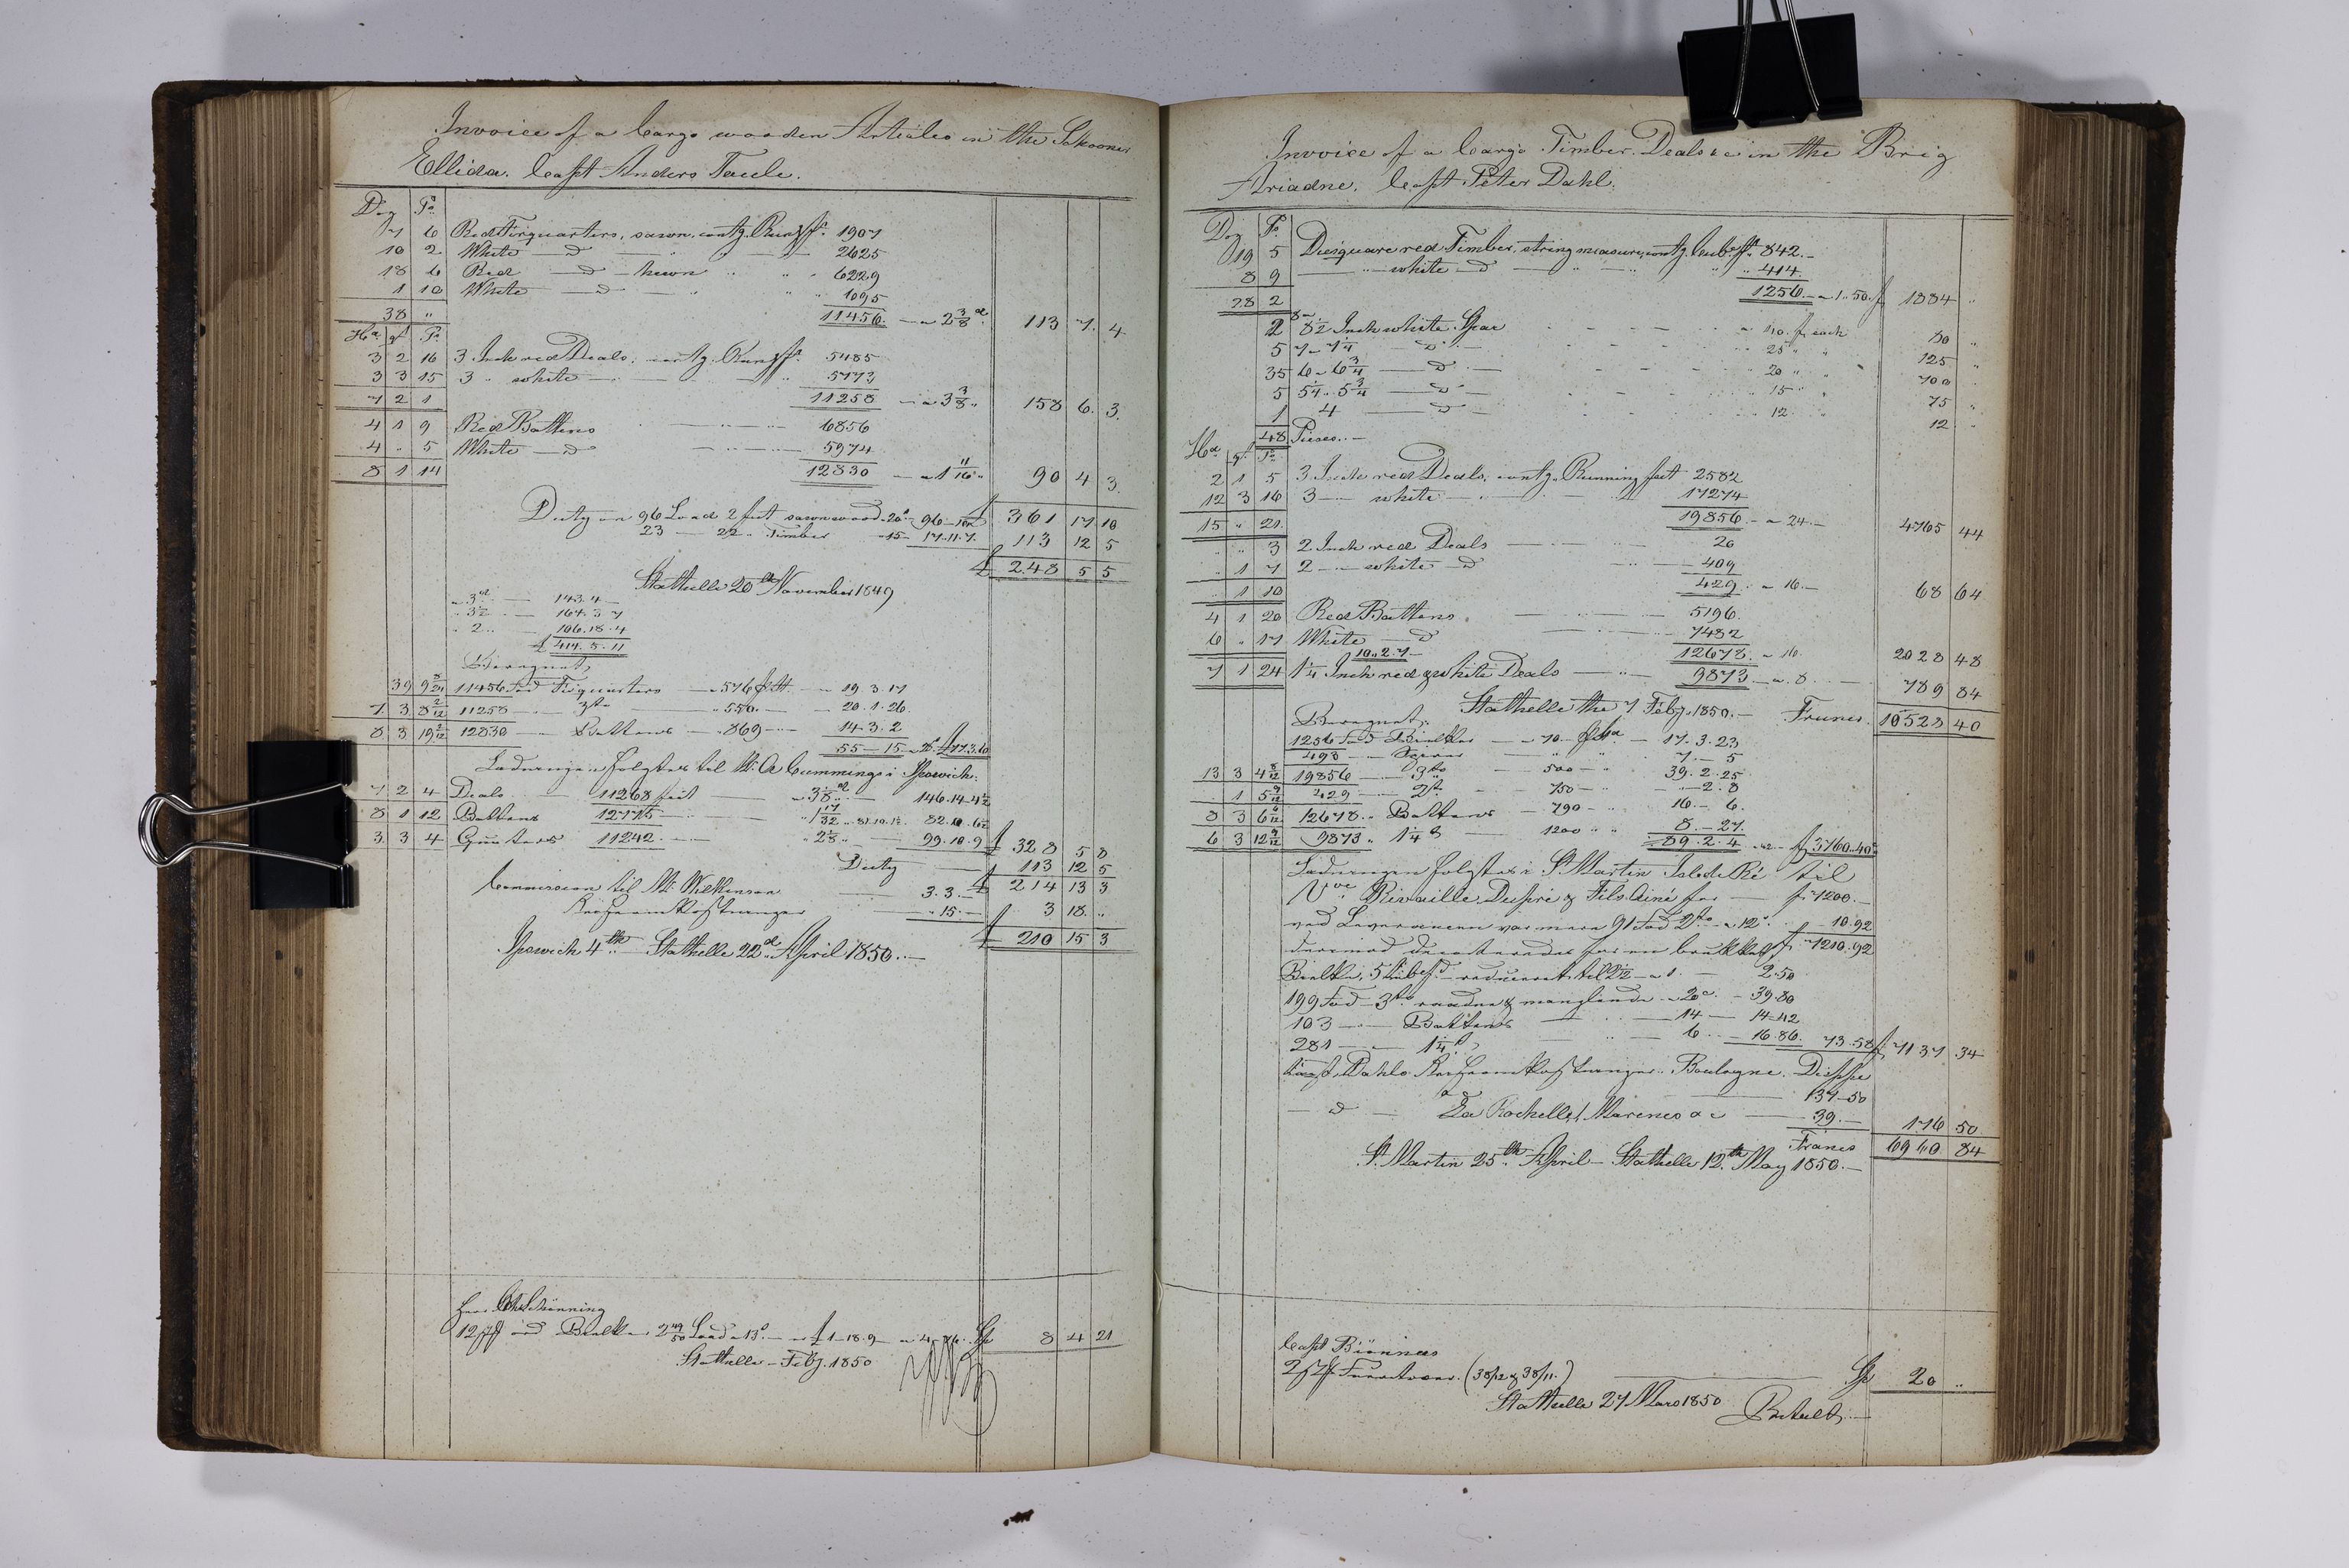 Invoice of a Cargo wooden Articles in the Schooner
Ellida. Capt Anders Taule.
Doz Ps
7 6 Red Firquarters, sawn, contg. Rung ft. 1907
10 2 White — d — 2625
18 6 Red — d — hewn " " 6229
1 10 White — d — " " 1095
38 " 11456. — a 2 3/8 d. 113 7. 4.
Hd qr Ps
3 2 16 3 Inch red Deals, contg. Rung ft. 5485
3 3 15 3 " white — " 5773
7 2 1 11258 — a 3 3/8 " 158 6. 3.
4 1 9 Red Battens 6856
4 " 5 White — d 5974
8 1 14 12830 — a 1 11/16 " 90 4 3.
£ 361 17 10
Duty on 96 Load 2 feet sawn wood a 20s 96-
23 — 22 " Timber a 15 — 17.11.7. 113 12 5
£ 248 5 5
Stathelle 20th November 1849
a 3d — 143.4 —
" 3 1/2 — 164.3.7
" 2 " — 106.18.4
£ 414.5.11
Beregnet,
39 11456 Fod Firquarters — a 576 — 19.3.17
7 3 8 11258 — 3to — " 550. — 20.1.26.
8 3 19 12830 — Battens — 869 — 14.3.2
55 — 15
Ladningen solgtes til W. Cummings i Ipswich:
7 2 4 Deals 11268 feet — a 3 1/8 d — 146.14.4 1/2
8 1 12 Battens 12775 — 1 17/32 82.10.6
3 3 4 Quarters 11242. — 2 1/8 " 99.10.9 £ 328 5 8
Duty — 113 12 5
£ 214 13 3
Commission til Mr Wilkinson — 3.3 —
— 15. — 3 18. "
£ 210 15 3
Ipswich 4th — Stathelle 22d April 1850. —
Schönning
8 4 21
Stathelle — Feby. 1850
Invoice of a Cargo Timber Deals &c in the Brig
Ariadne. Capt Peter Dahl.
Doz Ps
19 5 Diesquare red Timber, string measure, contg. Cub. ft. 842. —
8 9 — " white — d — " " 414.
28 2 1256. — a 1.50. f 1884 "
2 8 a 8 1/2 Inch white Spar — a 40. f each 80 "
5 7 a 7 1/4 — d — 25 " " 125 "
35 6 a 6 3/4 — d — 20 " " 700 "
5 5 1/4 a 5 3/4 — d — 15 " " 75 "
1 4 — d — 12 " 12 "
48 Pieces. —
Hd qr Ps
2 1 5 3 Inch red Deals, contg. Running feet 2582
12 3 16 3 — white — 17274
15 " 21 19856. — a 24. — 4765 44
" " 3 2 Inch red Deals — 20
" 1 7 2 — white — d — 409
" 1 10 429. — a 16. — 68 64
4 1 20 Red Battens. — 5196.
6 " 17 White — d — 7482
10.2.7 — 12678. — a 16. 2028 48
7 1 24 1 1/4 Inch red & white Deals — 9873 — a 8. — 789 84
Stathelle the 7 Feby. 1850. — Francs. 10528 40
Beregnet,
1256 Fod Bielker — a 70 — 17.3.23
493 — Spirer 7. — 5
13 3 4 19856 — 3to — 500 — 39.2.25
" 1 5 429 — 2to — 750 — " — 2.8
8 3 6 12678 " Battens — 790 — 16. — 6.
6 3 12 9873 " 1 1/4 — 1200 " 8. — 27.
89.2.4 f 3760.40
Ladningen solgtes i St Martin Isle de Ré til
Vve Rivaille Dupré & Fils Ainé for — f 7200. —
ved Leverancen var mere 91 Fod 2to a 12 c. 10.92
f 7210.92
2.50
199 Fod — 3to raadne & manglende a 20 c. — 39.80
103 — Battens — 14 — 14.42
281 — 1 1/4 — 6 — 16.86. 73.58 f 7137 34
Capt. Dahls Boulogne, Dieppe
137.50
— d — La Rochelle, Marennes &c — 39. — 176 50
Francs 6960 84
St Martin 25th April — Stathelle 12th May 1850. —
Capt
(38/12 & 38/11.) 20 "
Stathelle 27 Mars 1850